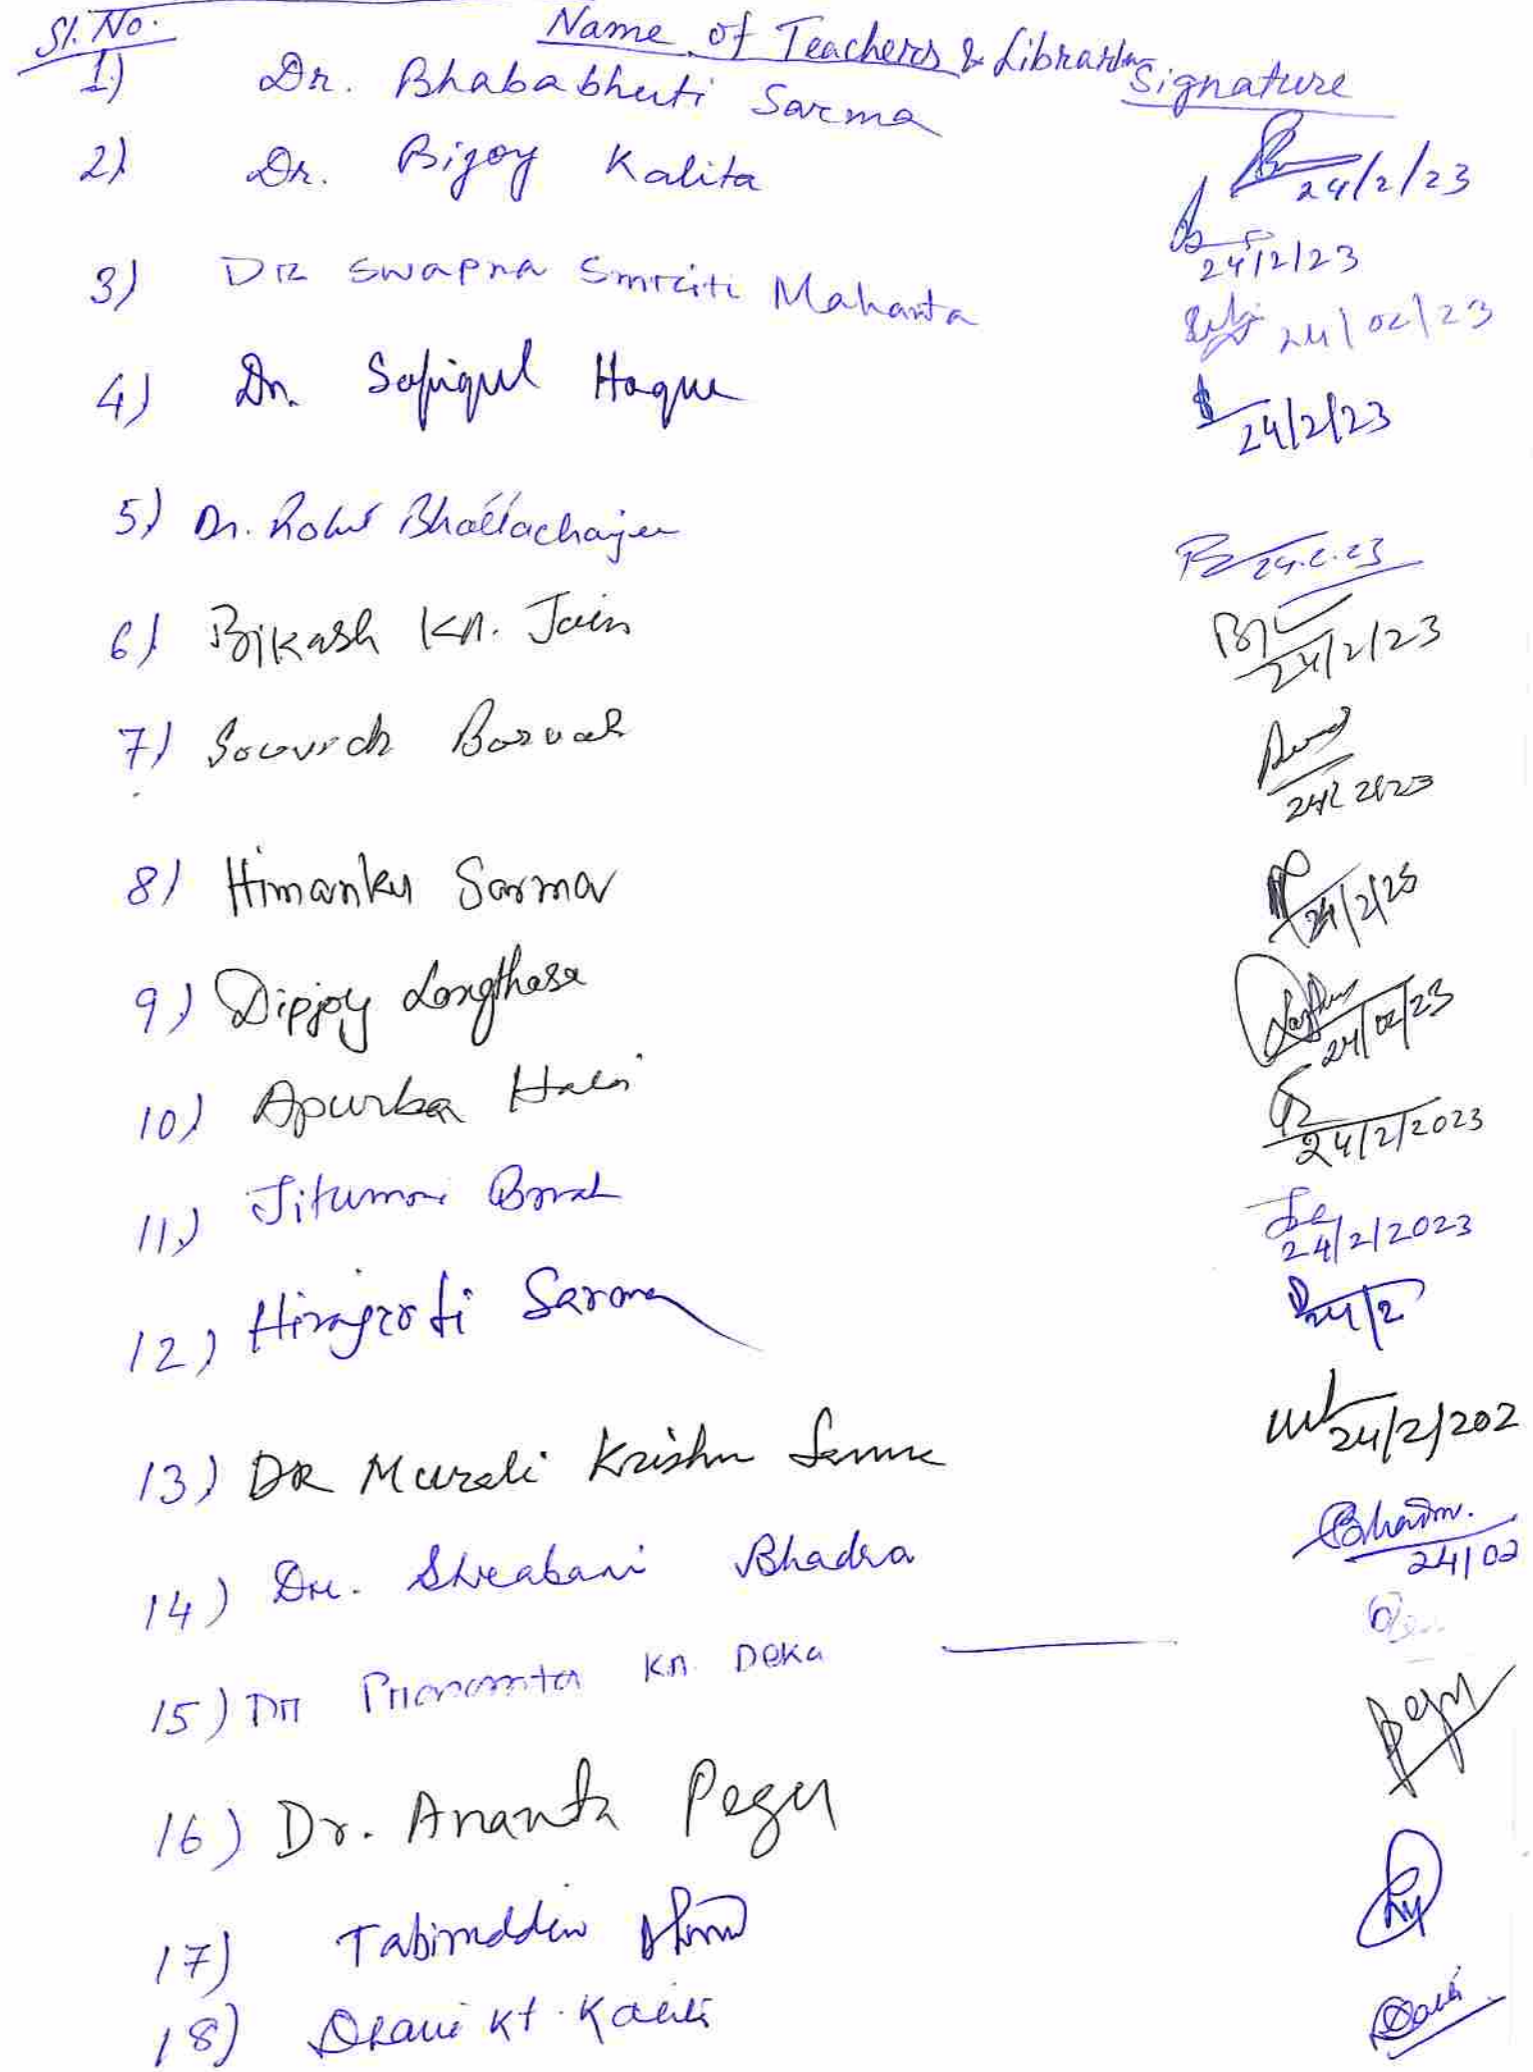 Sl. No. Name of Teachers & Librarian Signature
1) Dr. Bhababhuti Sarma 24/2/23
2) Dr. Bijoy Kalita 24/2/23
3) DR Swapna Smriti Mahanta 24/02/23
4) Dr. Sofiqul Haque 24/2/23
5) Dr. Bhattacharjee 24.2.23
6) Bikash Kr. Jain 24/2/23
7) Boruah 24/2/23
8) Himanku Sarma 24/2/23
9) Dipjoy Longthasa 24/02/23
10) Apurba 24/2/2023
11) Jitumoni Borah 24/2/2023
12) Sarma 24/2
13) DR Murali Krishna Sarma 24/2/202
14) Dr. Shrabani Bhadra 24/02
15) Dr Kr. Deka
16) Dr. Ananta Pegu Pegu
17) Tabiruddin
18) Kt. Kalita